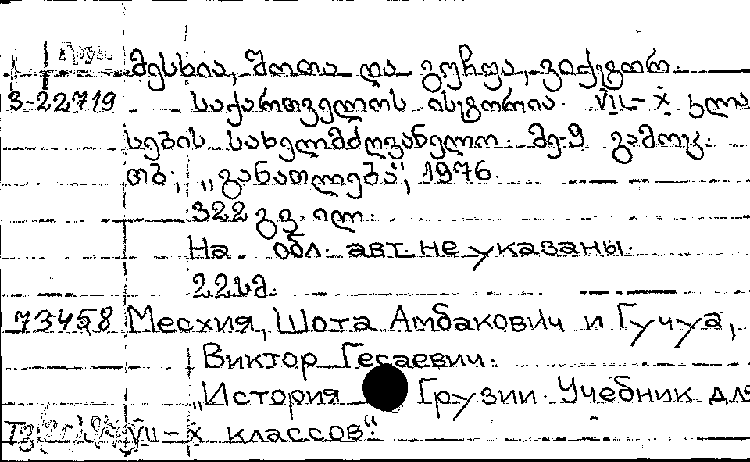 მესხია, შოთა და გუჩუა, ვიქტორ.
3-22719 საქართველოს ისტორია. VII-X კლა
სების სახელმძღვანელო. მე-9 გამოც.
თბ., „განათლება", 1976.
322 გვ. ილ.
На обл. авт. не указаны.
22სმ.
73458 Месхия, Шота Амбакович и Гучуа,
Виктор Гесаевич.
„История Грузии. Учебник для
VII-X классов".